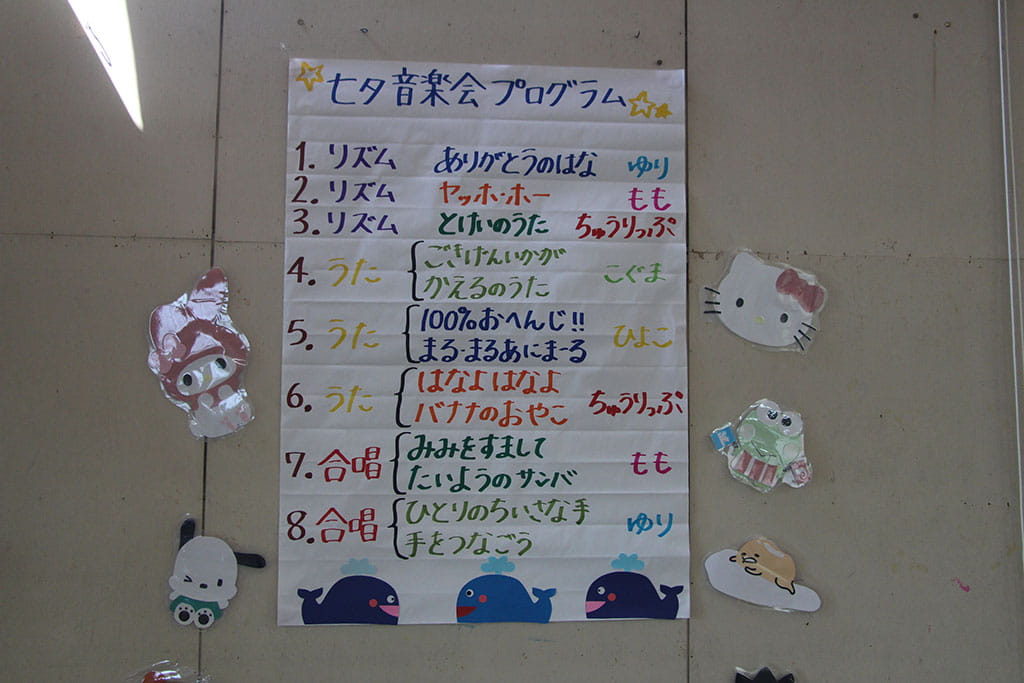 七夕音楽会プログラム
1. リズム ありがとうのはな ゆり
2. リズム ヤッホ・ホー もも
3. リズム とけいのうた ちゅうりっぷ
4. うた ごきげんいかが こぐま
かえるのうた
5. うた 100%おへんじ!! ひよこ
まる・まるあにまーる
6. うた はなよはなよ ちゅうりっぷ
バナナのおやこ
7. 合唱 みみをすまして もも
たいようのサンバ
8. 合唱 ひとりのちいさな手 ゆり
手をつなごう